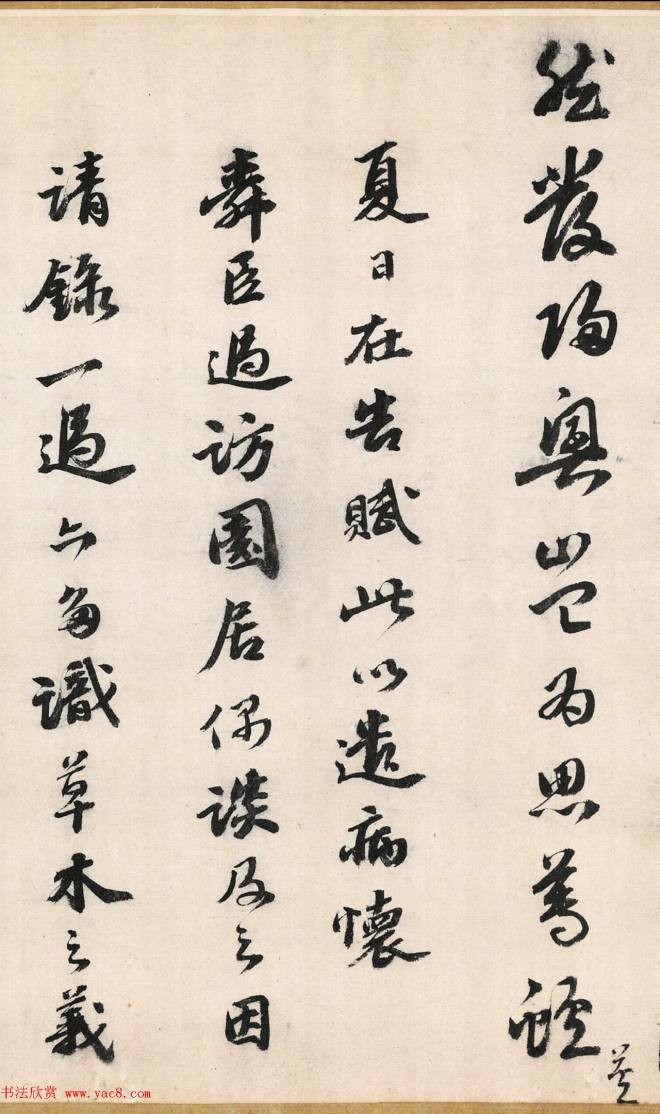 然發歸興豈為思蓴鱸
夏日在告賦此以遣病懷
舜臣過訪園居偶談及之因
請錄一過亦多識草木之義
书法欣赏 www.yac8.com